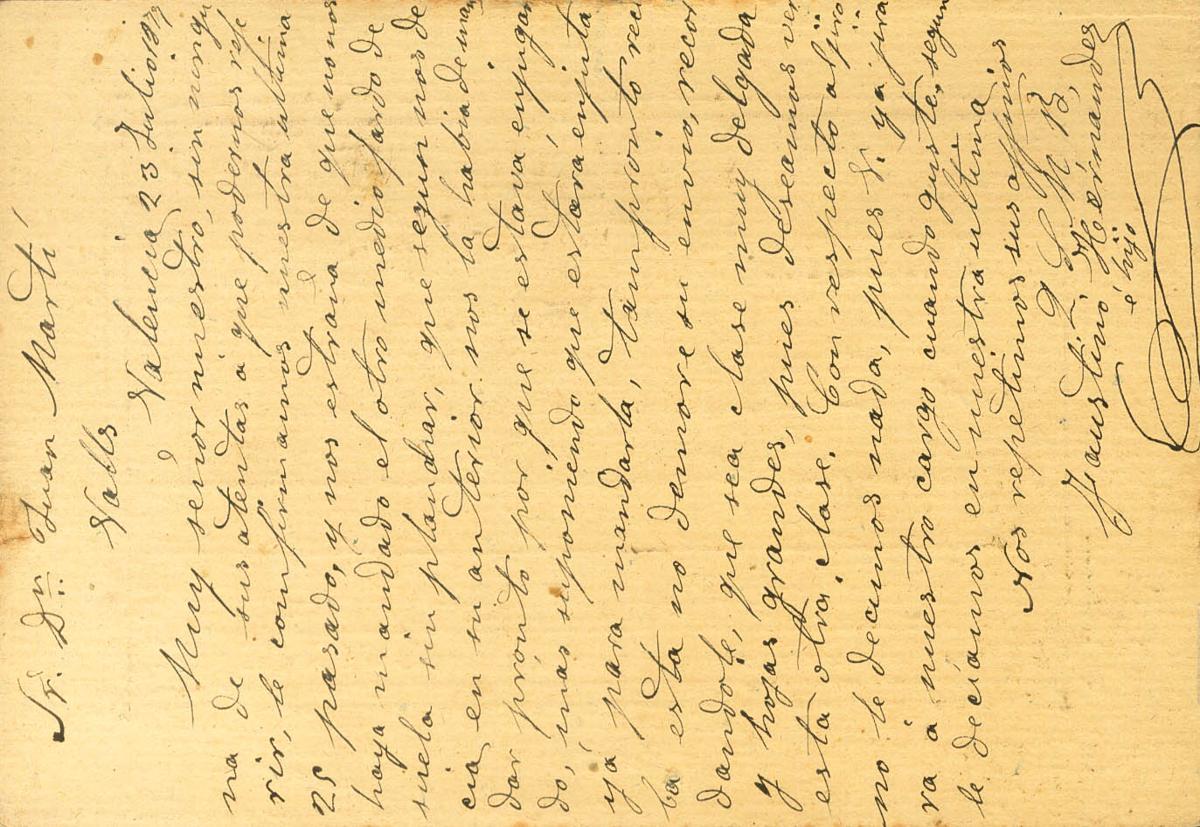 Sr. Dn. Juan Martí
Valls
Valencia 23 Julio 187
Muy señor nuestro, sin ningu
na de sus atentas a que podernos refe
rir, le confirmamos nuestra ultima
25 pasado, y nos estraña de que no nos
haya mandado el otro medio fardo de
suela sin planchar, que segun nos de
cia en su anterior nos la habia de man
dar prónto por que se estava enjugan
dó, mas suponiendo que estará enjuta
yá para mandarla, tan pronto reci
ba esta no demore su envio, recor
dandole, que sea clase muy delgada
y hojas grandes, pues deseamos ver
esta otra clase. Con respecto al jiro
no le decimos nada, pues V. ya jira
rá á nuestro cargo cuando guste, segun
le deciamos en nuestra ultima
Nos repetimos sus affmos
Q S M B,
Faustino Hernandez
é hijo